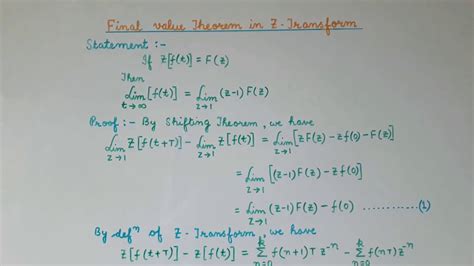 Final value Theorem in Z-Transform
Statement :-
If Z[f(t)] = F(z)
Then
Lim t→∞ [f(t)] = Lim z→1 (z-1) F(z)
Proof :- By Shifting Theorem, we have
Lim z→1 Z[f(t+T)] - Lim z→1 Z[f(t)] = Lim z→1 [zF(z) - zf(0) - F(z)]
= Lim z→1 [(z-1) F(z) - zf(0)]
= Lim z→1 (z-1) F(z) - f(0) ............(1)
By defⁿ of Z-Transform, we have
Z[f(t+T)] - Z[f(t)] = k∑n=0 f(n+1)T z⁻ⁿ - k∑n=0 f(nT) z⁻ⁿ